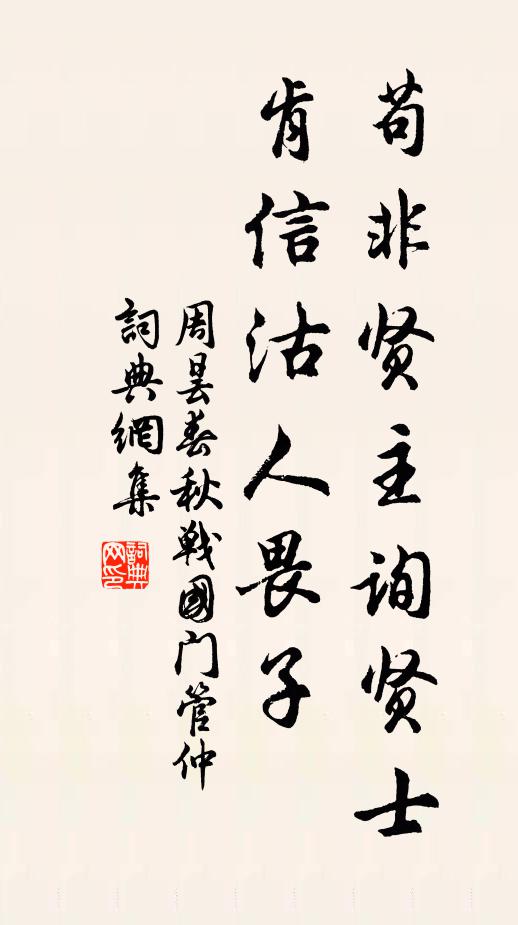 苟非贤主询贤士
肯信沽人畏子
周昙春秋戦國门管仲
詞典網集
詞典网印